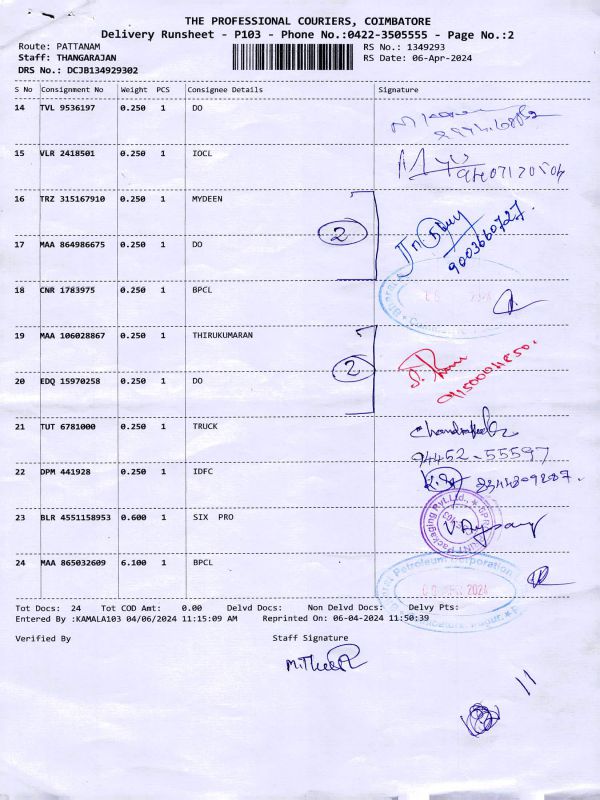 THE PROFESSIONAL COURIERS, COIMBATORE
Delivery Runsheet - P103 - Phone No.:0422-3505555 - Page No.:2
Route: PATTANAM RS No.: 1349293
Staff: THANGARAJAN RS Date: 06-Apr-2024
DRS No.: DCJB134929302
S No Consignment No Weight PCS Consignee Details Signature
14 TVL 9536197 0.250 1 DO
15 VLR 2418501 0.250 1 IOCL
16 TRZ 315167910 0.250 1 MYDEEN
2
9003660727.
17 MAA 864986675 0.250 1 DO
18 CNR 1783975 0.250 1 BPCL
19 MAA 106028867 0.250 1 THIRUKUMARAN
2
20 EDQ 15970258 0.250 1 DO
21 TUT 6781000 0.250 1 TRUCK
94452-55597
22 DPM 441928 0.250 1 IDFC
23 BLR 4551158953 0.600 1 SIX PRO
24 MAA 865032609 6.100 1 BPCL
Petroleum Corporation
2024
Tot Docs: 24 Tot COD Amt: 0.00 Delvd Docs: Non Delvd Docs: Delvy Pts:
Entered By :KAMALA103 04/06/2024 11:15:09 AM Reprinted On: 06-04-2024 11:50:39
Verified By Staff Signature
11